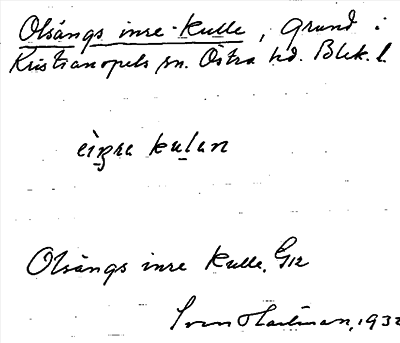 Olsängs inre kulle, grund i
Kristianopels sn. Östra hd. Blek. l.
eɪŋra kulan
Olsängs inre kulle, G12
Sven Hartman, 1932